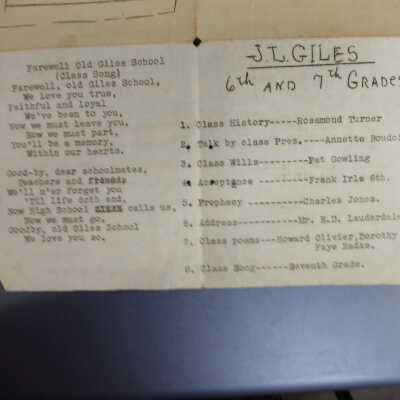 Farewell Old Giles School
(Class Song)
Farewell, old Giles School,
We love you true,
Faithful and loyal
We've been to you,
Now we must leave you,
Now we must part,
You'll be a memory,
Within our hearts.
Good-by, dear schoolmates,
Teachers and friends,
We'll n'er forget you
'Til life doth end.
Now High School calls us,
Now we must go.
Goodby, old Giles School
We love you so.
J.L. GILES
6th AND 7th GRADES
1. Class History-----Rosamond Turner
2. Talk by class Pres.----Annette Boudoi
3. Class Wills---------Pat Gowling
4. Acceptance ---------Frank Irle 6th.
5. Prophecy -----------Charles Jones.
6. Address-----------Mr. R.D. Lauderdale
7. Class poems---Howard Olivier, Dorothy
Faye Radas.
8. Class Song------Seventh Grade.